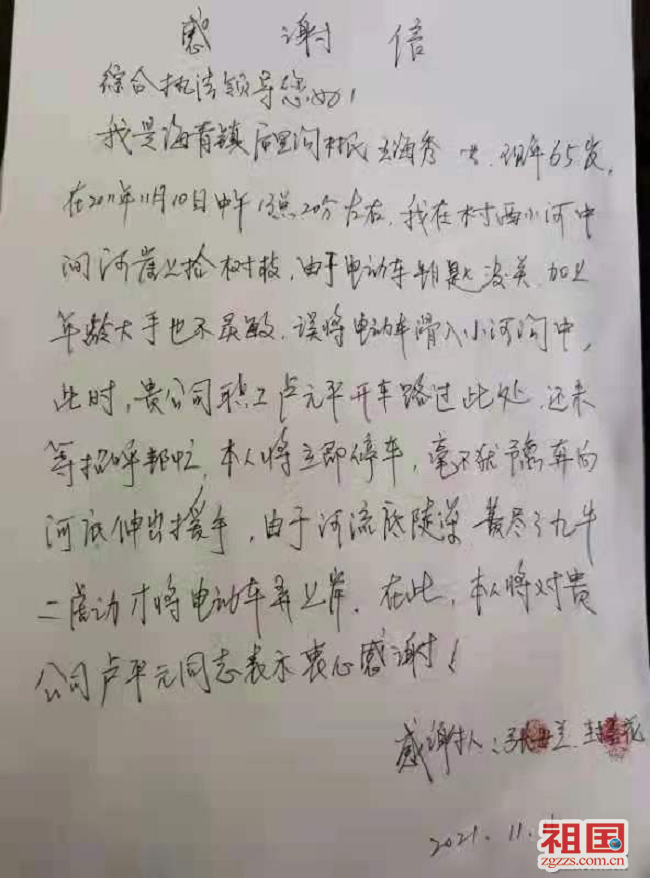 感谢信
综合执法领导您好！
我是海青镇后里沟村民 海秀 女.现年65岁,
在2021年11月10日中午1点20分左右.我在村西小河中
间河崖上捡树枝,由于电动车钥匙没关.加上
年龄大手也不灵敏.误将电动车滑入小河沟中,
此时,贵公司职工卢元平开车路过此处.还未
等招呼帮忙,本人将立即停车,毫不犹予离车向
河底伸出援手,由于河流底陡深 费尽了九牛
二虎功才将电动车弄上岸.在此,本人将对贵
公司卢平元同志表示衷心感谢！
感谢人:张 兰. 花
2021.11.
祖国
zgzzs.com.cn